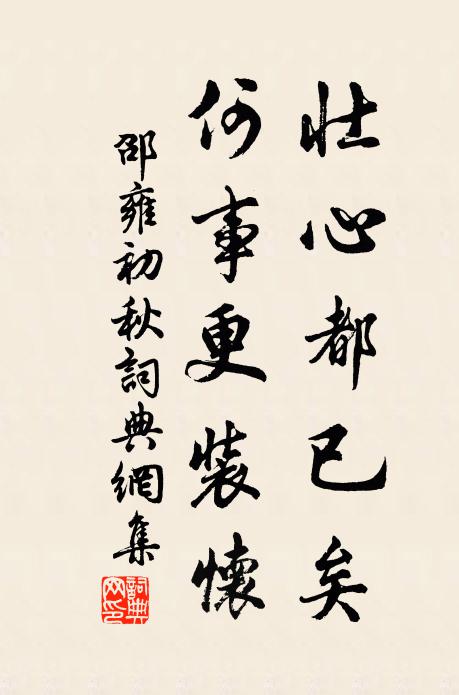 壯心都已矣
何事更裝懷
邵雍初秋詞典網集
詞典
網印